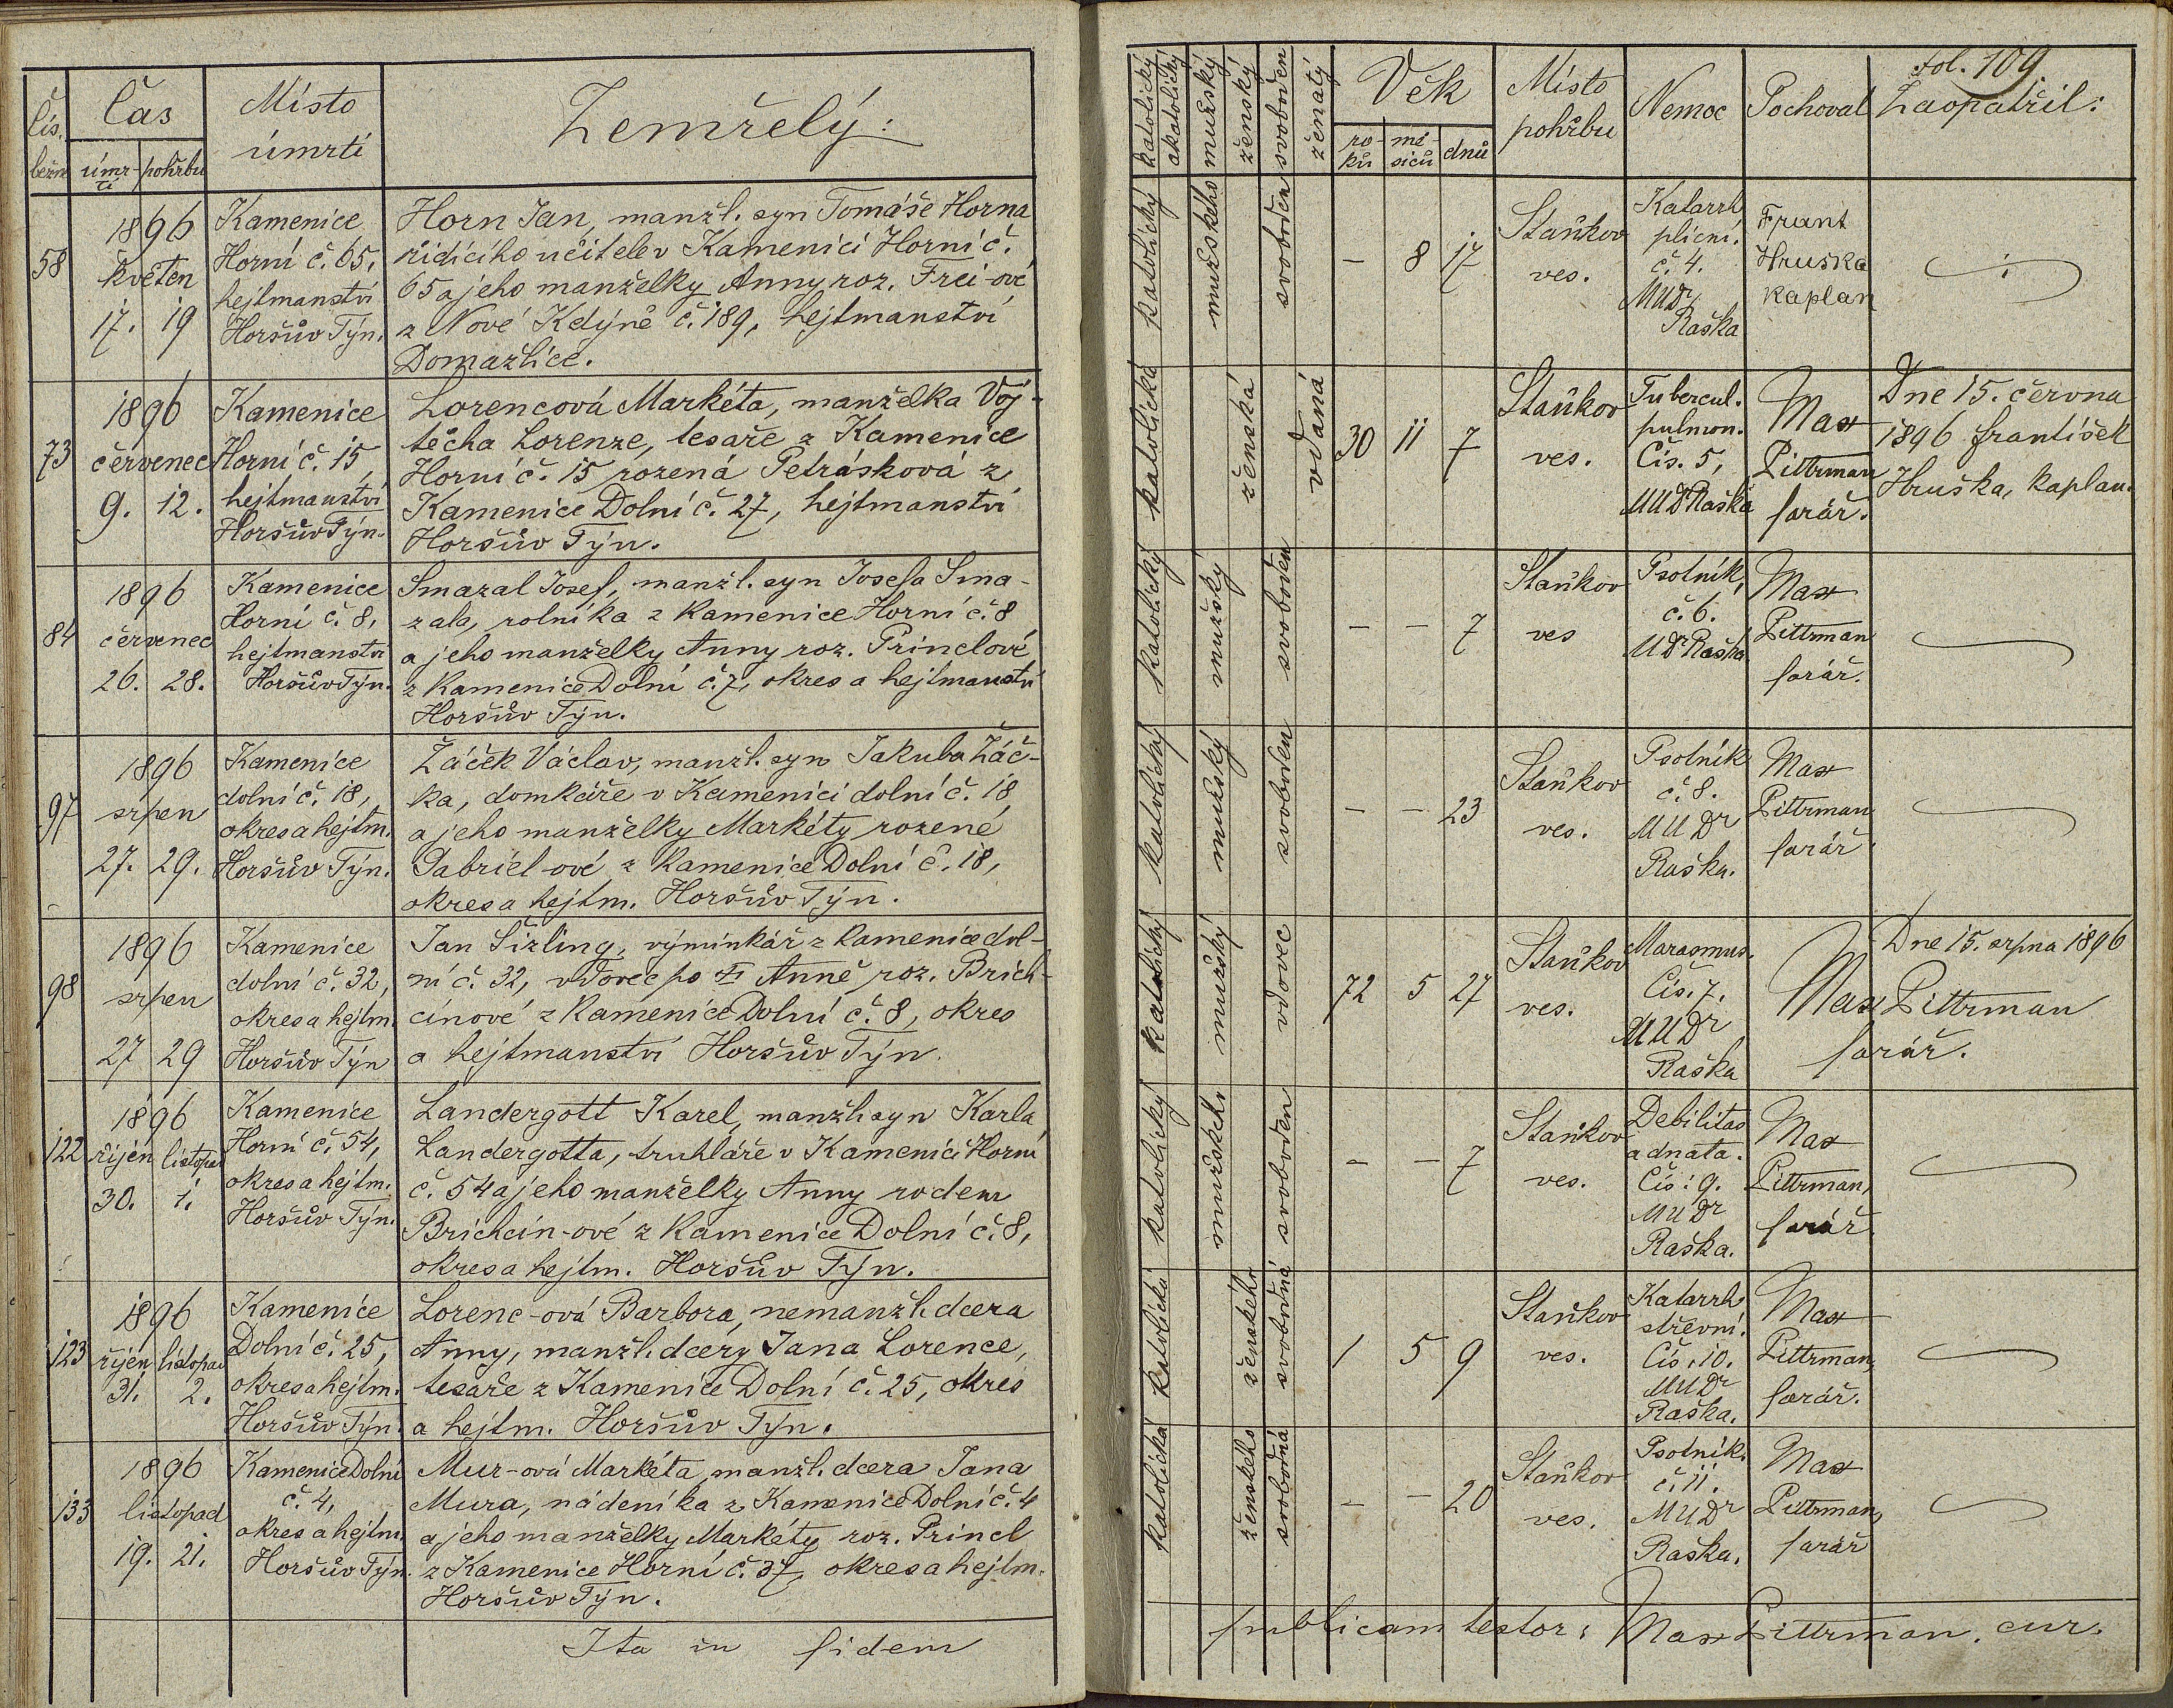 Čís. běžné
Čas
úmrtí
pohřbu
Místo
úmrtí
Zemřelý:
58
1896
květen
17. 19
Kamenice
Horní č. 65,
hejtmanství
Horšův Týn.
Horn Jan, manžl. syn Tomáše Horna
řídícího učitele v Kamenici Horní č.
65 a jeho manželky Anny roz. Frei-ové
z Nové Kdýně č. 189, hejtmanství
Domažlice.
73
1896
červenec
9. 12.
Kamenice
Horní č. 15,
hejtmanství
Horšův Týn.
Lorencová Markéta, manželka Voj-
těcha Lorenze, tesaře z Kamenice
Horní č. 15 rozená Petrásková z
Kamenice Dolní č. 27, hejtmanství
Horšův Týn.
84
1896
červenec
26. 28.
Kamenice
Horní č. 8,
hejtmanství
Horšův Týn.
Smazal Josef, manžl. syn Josefa Sma-
zala, rolníka z Kamenice Horní č. 8
a jeho manželky Anny roz. Princlové
z Kamenice Dolní č. 7, okres a hejtmanství
Horšův Týn.
97
1896
srpen
27. 29.
Kamenice
dolní č. 18,
okres a hejtm.
Horšův Týn.
Žáček Václav, manžl. syn Jakuba Žáč-
ka, domkáře v Kamenici dolní č. 18
a jeho manželky Markéty rozené
Gabriel-ové z Kamenice Dolní č. 18,
okres a hejtm. Horšův Týn.
98
1896
srpen
27 29
Kamenice
dolní č. 32,
okres a hejtm.
Horšův Týn
Jan Šizling, výminkář z Kamenice dol-
ní č. 32, vdovec po Anně roz. Brich-
cínové z Kamenice Dolní č. 8, okres
a hejtmanství Horšův Týn.
122
1896
říjen listopad
30. 1.
Kamenice
Horní č. 54,
okres a hejtm.
Horšův Týn.
Landergott Karel, manžl. syn Karla
Landergotta, truhláře v Kamenici Horní
č. 54 a jeho manželky Anny rodem
Brichcín-ové z Kamenice Dolní č. 8,
okres a hejtm. Horšův Týn.
123
1896
říjen listopad
31. 2.
Kamenice
Dolní č. 25,
okres a hejtm.
Horšův Týn.
Lorenc-ová Barbora, nemanžl. dcera
Anny, manžl. dcery Jana Lorence,
tesaře z Kamenice Dolní č. 25, okres
a hejtm. Horšův Týn.
133
1896
listopad
19. 21.
Kamenice Dolní
č. 4,
okres a hejtm.
Horšův Týn.
Mur-ová Markéta manžl. dcera Jana
Mura, nádeníka z Kamenice Dolní č. 4
a jeho manželky Markéty roz. Princl
z Kamenice Horní č. 37, okres a hejtm.
Horšův Týn.
Ita in fidem
fol. 109.
katolický
akatolický
mužský
ženský
svoboden
ženatý
Věk
roků
měsíců
dnů
Místo
pohřbu
Nemoc
Pochoval
Zaopatřil:
katolický
mužského
svoboden
– 8 17
Staňkov
ves.
Katarrh
plicní.
č. 4.
MUDr
Raška
Frant
Hruška
kaplan
katolická
ženská
vdaná
30 11 7
Staňkov
ves.
Tubercul.
pulmon.
Čís. 5,
MUDr Raška
Max
Pittrman
farář.
Dne 15. června
1896 František
Hruška, kaplan.
katolický
mužský
svoboden
– – 7
Staňkov
ves
Psotník,
č. 6.
MUDr Raška
Max
Pittrman
farář.
katolický
mužský
svoboden
– – 23
Staňkov
ves.
Psotník
č. 8.
MUDr
Raška.
Max
Pittrman
farář
katolický
mužský
vdovec
72 5 27
Staňkov
ves.
Marasmus.
Čís. 7.
MUDr
Raška
Dne 15. srpna 1896
Max Pittrman
farář.
katolický
mužského
svoboden
– – 7
Staňkov
ves.
Debilitas
adnata.
Čís: 9.
MUDr
Raška.
Max
Pittrman,
farář
katolická
ženského
svobodná
1 5 9
Staňkov
ves.
Katarrh
střevní.
Čís. 10.
MUDr
Raška.
Max
Pittrman,
farář.
katolická
ženského
svobodná
– – 20
Staňkov
ves.
Psotník.
č. 11.
MUDr
Raška.
Max
Pittrman,
farář
publicam testor: Max Pittrman. cur.